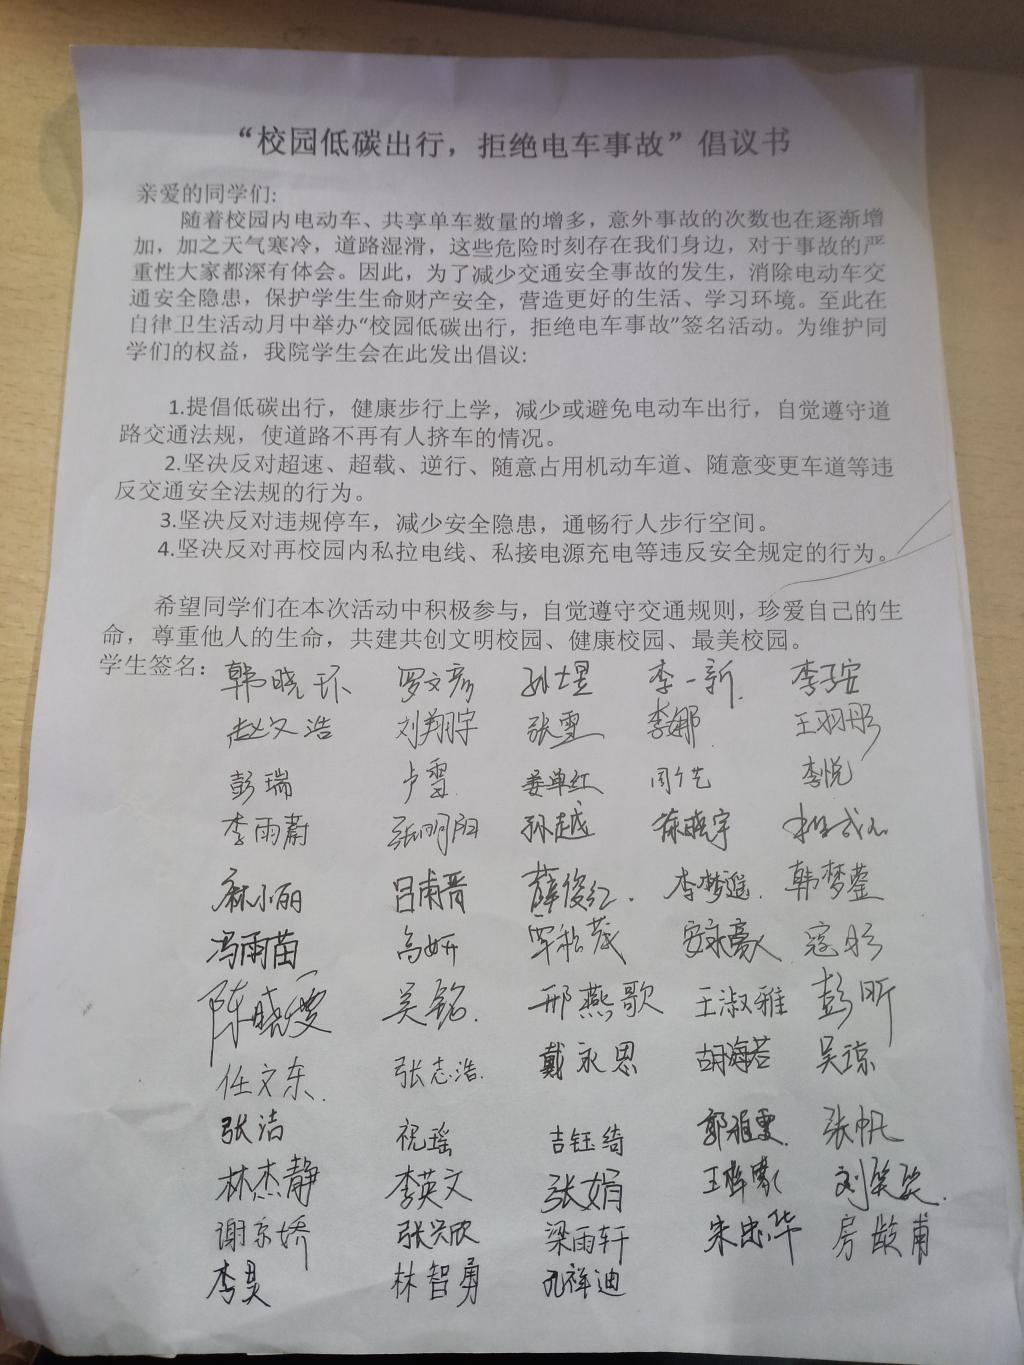 “校园低碳出行，拒绝电车事故”倡议书
亲爱的同学们:
随着校园内电动车、共享单车数量的增多，意外事故的次数也在逐渐增
加，加之天气寒冷，道路湿滑，这些危险时刻存在我们身边，对于事故的严
重性大家都深有体会。因此，为了减少交通安全事故的发生，消除电动车交
通安全隐患，保护学生生命财产安全，营造更好的生活、学习环境。至此在
自律卫生活动月中举办“校园低碳出行，拒绝电车事故”签名活动。为维护同
学们的权益，我院学生会在此发出倡议:
1.提倡低碳出行，健康步行上学，减少或避免电动车出行，自觉遵守道
路交通法规，使道路不再有人挤车的情况。
2.坚决反对超速、超载、逆行、随意占用机动车道、随意变更车道等违
反交通安全法规的行为。
3.坚决反对违规停车，减少安全隐患，通畅行人步行空间。
4.坚决反对再校园内私拉电线、私接电源充电等违反安全规定的行为。
希望同学们在本次活动中积极参与，自觉遵守交通规则，珍爱自己的生
命，尊重他人的生命，共建共创文明校园、健康校园、最美校园。
学生签名: 韩晓环 罗文彦 孙士昱 李一新 李子安
赵文浩 刘翔宇 张雪 李娜 王羽彤
彭瑞 卢雪 姜单红 李悦
李雨蔚 张明阳 孙越 陈晓宇
麻小丽 吕甫晋 薛俊红 李梦遥 韩梦蓥
冯雨苗 高妍 覃松茂 安永豪 寇杉
陈晓雯 吴铭 邢燕歌 王淑雅 彭昕
任文东 张志浩 戴永恩 胡海若 吴琼
张洁 祝瑶 吉钰绮 郭雅雯 张帆
林杰静 李英文 张娟 刘笑笑
谢京娇 张兴欣 梁雨轩 朱忠华 房龄甫
李昊 林智勇 孔祥迪